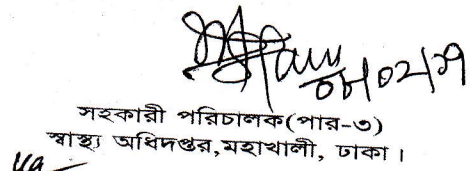 ০৮/০২/০৭
সহকারী পরিচালক(পার-৩)
স্বাস্থ্য অধিদপ্তর,মহাখালী, ঢাকা।